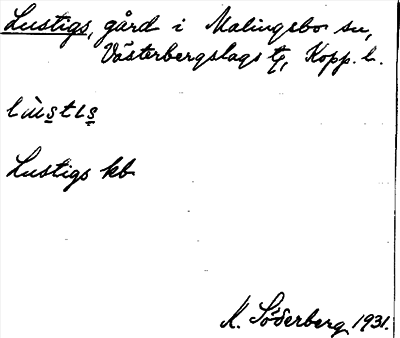 Lustigs, gård i Malingsbo sn,
Västerbergslags tg, Kopp. l.
Lustigs kb
K. Söderberg 1931.